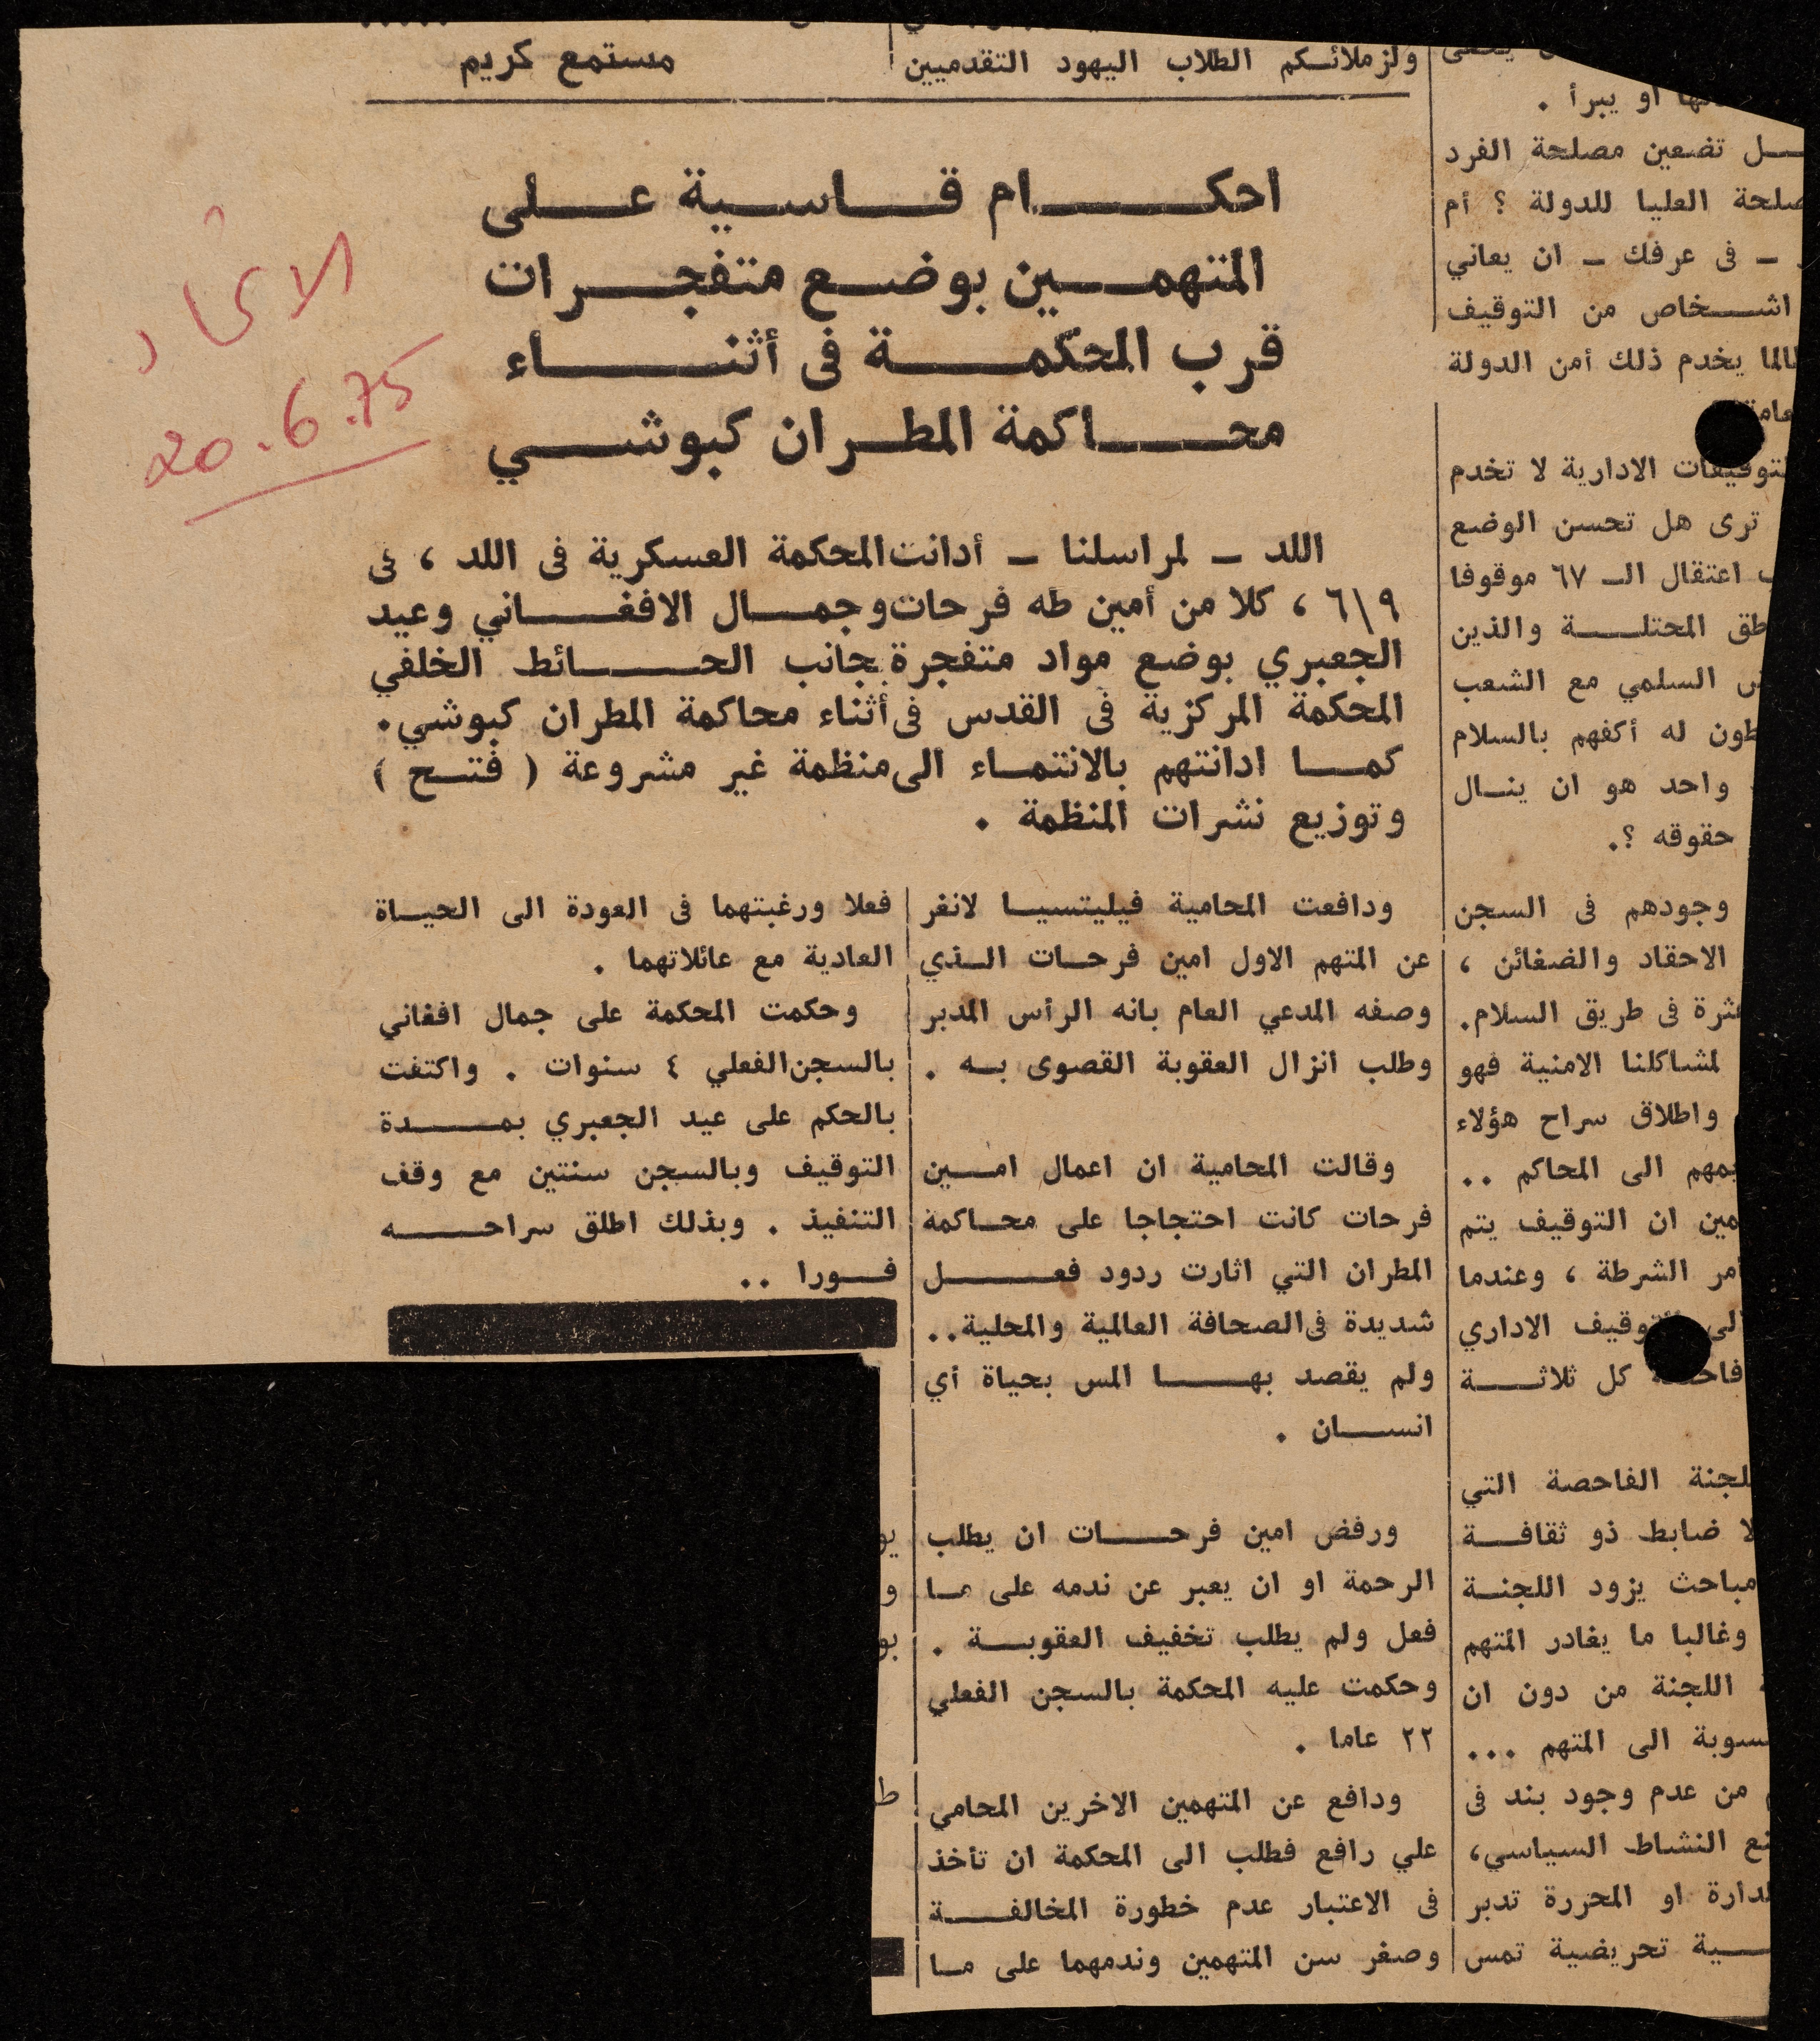 ولزملائكم الطلاب اليهود التقدميين
مستمع كريم
احكام قاسية على
المتهمين بوضع متفجرات
قرب المحكمة فى أثناء
محاكمة المطران كبوشي
الاتحاد
20.6.75
اللد – لمراسلنا – أدانت المحكمة العسكرية فى اللد ، فى
٦\٩ ، كلا من أمين طه فرحات وجمال الافغاني وعيد
الجعبري بوضع مواد متفجرة بجانب الحائط الخلفي
المحكمة المركزية فى القدس فى أثناء محاكمة المطران كبوشي .
كما ادانتهم بالانتماء الى منظمة غير مشروعة ( فتح )
وتوزيع نشرات المنظمة .
ودافعت المحامية فيليتسيا لانغر
عن المتهم الاول امين فرحات الذي
وصفه المدعي العام بانه الرأس المدبر
وطلب انزال العقوبة القصوى به .
وقالت المحامية ان اعمال امين
فرحات كانت احتجاجا على محاكمة
المطران التي اثارت ردود فعل
شديدة فى الصحافة العالمية والمحلية ..
ولم يقصد بها المس بحياة أي
انسان .
ورفض امين فرحات ان يطلب
الرحمة او ان يعبر عن ندمه على ما
فعل ولم يطلب تخفيف العقوبة .
وحكمت عليه المحكمة بالسجن الفعلي
٢٢ عاما .
ودافع عن المتهمين الاخرين المحامي
علي رافع فطلب الى المحكمة ان تأخذ
فى الاعتبار عدم خطورة المخالفة
وصغر سن المتهمين وندمهما على ما
فعلا ورغبتهما فى العودة الى الحياة
العادية مع عائلاتهما .
وحكمت المحكمة على جمال افغاني
بالسجن الفعلي ٤ سنوات . واكتفت
بالحكم على عيد الجعبري بمدة
التوقيف وبالسجن سنتين مع وقف
التنفيذ . وبذلك اطلق سراحه
فورا ..
او يبرأ .
تضعين مصلحة الفرد
العليا للدولة ؟ أم
– فى عرفك – ان يعاني
اشخاص من التوقيف
يخدم ذلك أمن الدولة
الادارية لا تخدم
ترى هل تحسن الوضع
اعتقال الـ ٦٧ موقوفا
المحتلة والذين
السلمي مع الشعب
له أكفهم بالسلام
واحد هو ان ينال
حقوقه ؟.
وجودهم فى السجن
الاحقاد والضغائن ،
فى طريق السلام.
لمشاكلنا الامنية فهو
واطلاق سراح هؤلاء
الى المحاكم ..
ان التوقيف يتم
الشرطة ، وعندما
التوقيف الاداري
كل ثلاثة
الفاحصة التي
ضابط ذو ثقافة
مباحث يزود اللجنة
وغالبا ما يغادر المتهم
اللجنة من دون ان
الى المتهم ...
من عدم وجود بند فى
النشاط السياسي،
او المحررة تدبر
تحريضية تمس